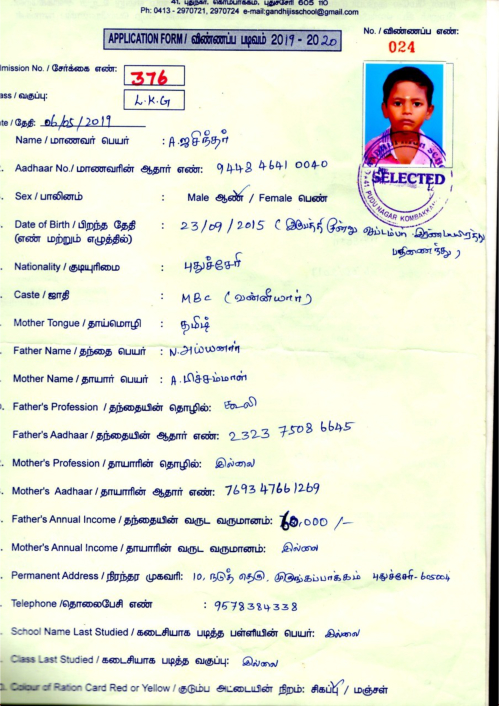 41, புதுநகர், கொம்பாக்கம், புதுச்சேரி 605 110
Ph: 0413 - 2970721, 2970724 e-mail:gandhijisschool@gmail.com
No. / விண்ணப்ப எண்:
024
APPLICATION FORM / விண்ணப்ப படிவம் 2019 - 2020
mission No. / சேர்க்கை எண்: 376
ass / வகுப்பு: L.K.G
te / தேதி: 06/05/2019
SELECTED
41 PUDU NAGAR KOMBAKKA
Name / மாணவர் பெயர் :
Aadhaar No./ மாணவரின் ஆதார் எண்: 9448 4641 0040
Sex / பாலினம் : Male ஆண் / Female பெண்
Date of Birth / பிறந்த தேதி : 23/09/2015 (இருபத்தி மூன்று செப்டம்பர் இரண்டாயிரத்து
(எண் மற்றும் எழுத்தில்) பதினைந்து)
Nationality / குடியுரிமை : புதுச்சேரி
Caste / ஜாதி : MBC (வன்னியார்)
Mother Tongue / தாய்மொழி : தமிழ்
Father Name / தந்தை பெயர் : N.அய்யனார்
Mother Name / தாயார் பெயர் : A.பிச்சம்மாள்
Father's Profession / தந்தையின் தொழில்: கூலி
Father's Aadhaar / தந்தையின் ஆதார் எண்: 2323 7508 6645
Mother's Profession / தாயாரின் தொழில்: இல்லை
Mother's Aadhaar / தாயாரின் ஆதார் எண்: 7693 4766 1269
Father's Annual Income / தந்தையின் வருட வருமானம்: 60,000 /-
Mother's Annual Income / தாயாரின் வருட வருமானம்: இல்லை
Permanent Address / நிரந்தர முகவரி: 10, நடுத் தெரு, முருங்கப்பாக்கம் புதுச்சேரி- 605004
Telephone /தொலைபேசி எண் : 9578384338
School Name Last Studied / கடைசியாக படித்த பள்ளியின் பெயர்: இல்லை
Class Last Studied / கடைசியாக படித்த வகுப்பு: இல்லை
Colour of Ration Card Red or Yellow / குடும்ப அட்டையின் நிறம்: சிகப்பு / மஞ்சள்